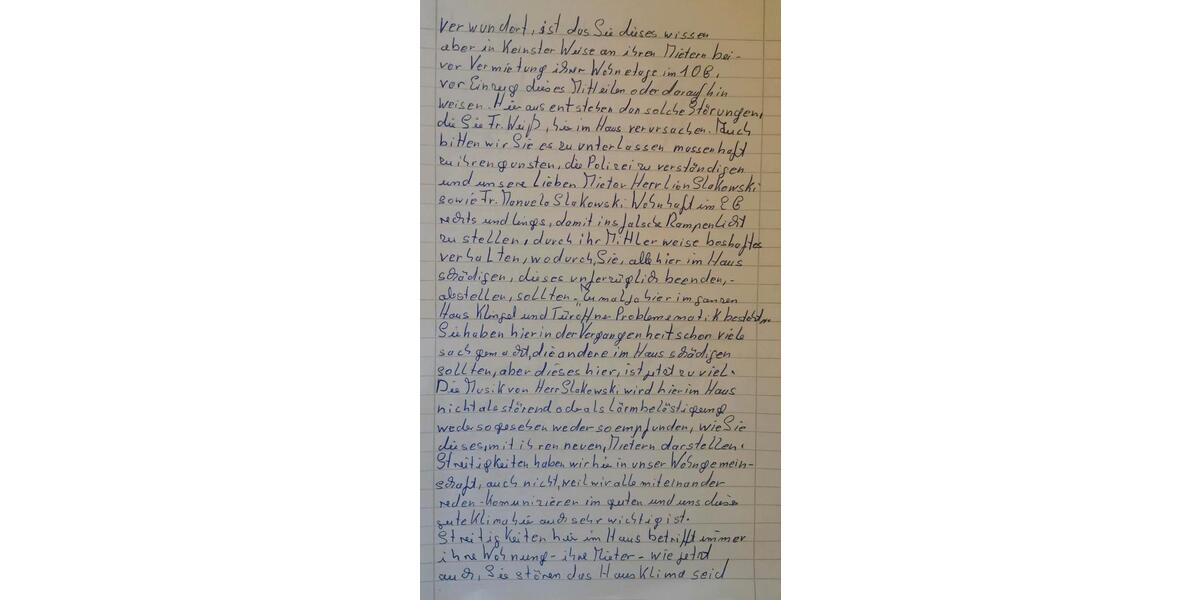 Verwundert, ist das Sie dieses wissen
aber in Keinster Weise an ihren Mietern bei-
vor Vermietung ihrer Wohnetage im 1 OG,
vor Einzug dieses Mitteilen oder darauf hin
weisen. Hieraus entstehen dan solche Störungen,
die Sie Fr. Weiß, hie im Haus verursachen. Auch
bitten wir Sie es zu unterlassen massenhaft
zu ihren gunsten, die Polizei zu verständigen
und unsere Lieben Mieter Herr Lion Slakowski
sowie Fr. Manuela Slakowski Wohnhaft im EG
rechts und lings, damit ins falsche Rampenlicht
zu stellen, durch ihr Mittlerweise boshaftes
verhalten, wodurch, Sie, alle hier im Haus
schädigen, dieses unferzüglich beenden,-
abstellen, sollten. Zumal ja hier im ganzen
Haus Klingel und Türöffner Problemematik besteht
Sie haben hier in der Vergangenheit schon viele
sach gemacht, die andere im Haus schädigen
sollten, aber dieses hier, ist jetzt zu viel.
Die Musik von Herr Slakowski wird hier im Haus
nicht als störend oder als Lärmbelästigung
weder so gesehen weder so empfunden, wie Sie
dieses, mit ihren neuen, Mietern darstellen.
Streitigkeiten haben wir hie in unser Wohngemein-
schaft, auch nicht, weil wir alle miteinander
reden - Komunizieren im guten und uns diese
gute Klima hie auch sehr wichtig ist.
Streitigkeiten hie im Haus betrifft immer
ihre Wohnung - ihre Mieter - wie jetzt
auch, Sie stören das HausKlima seid